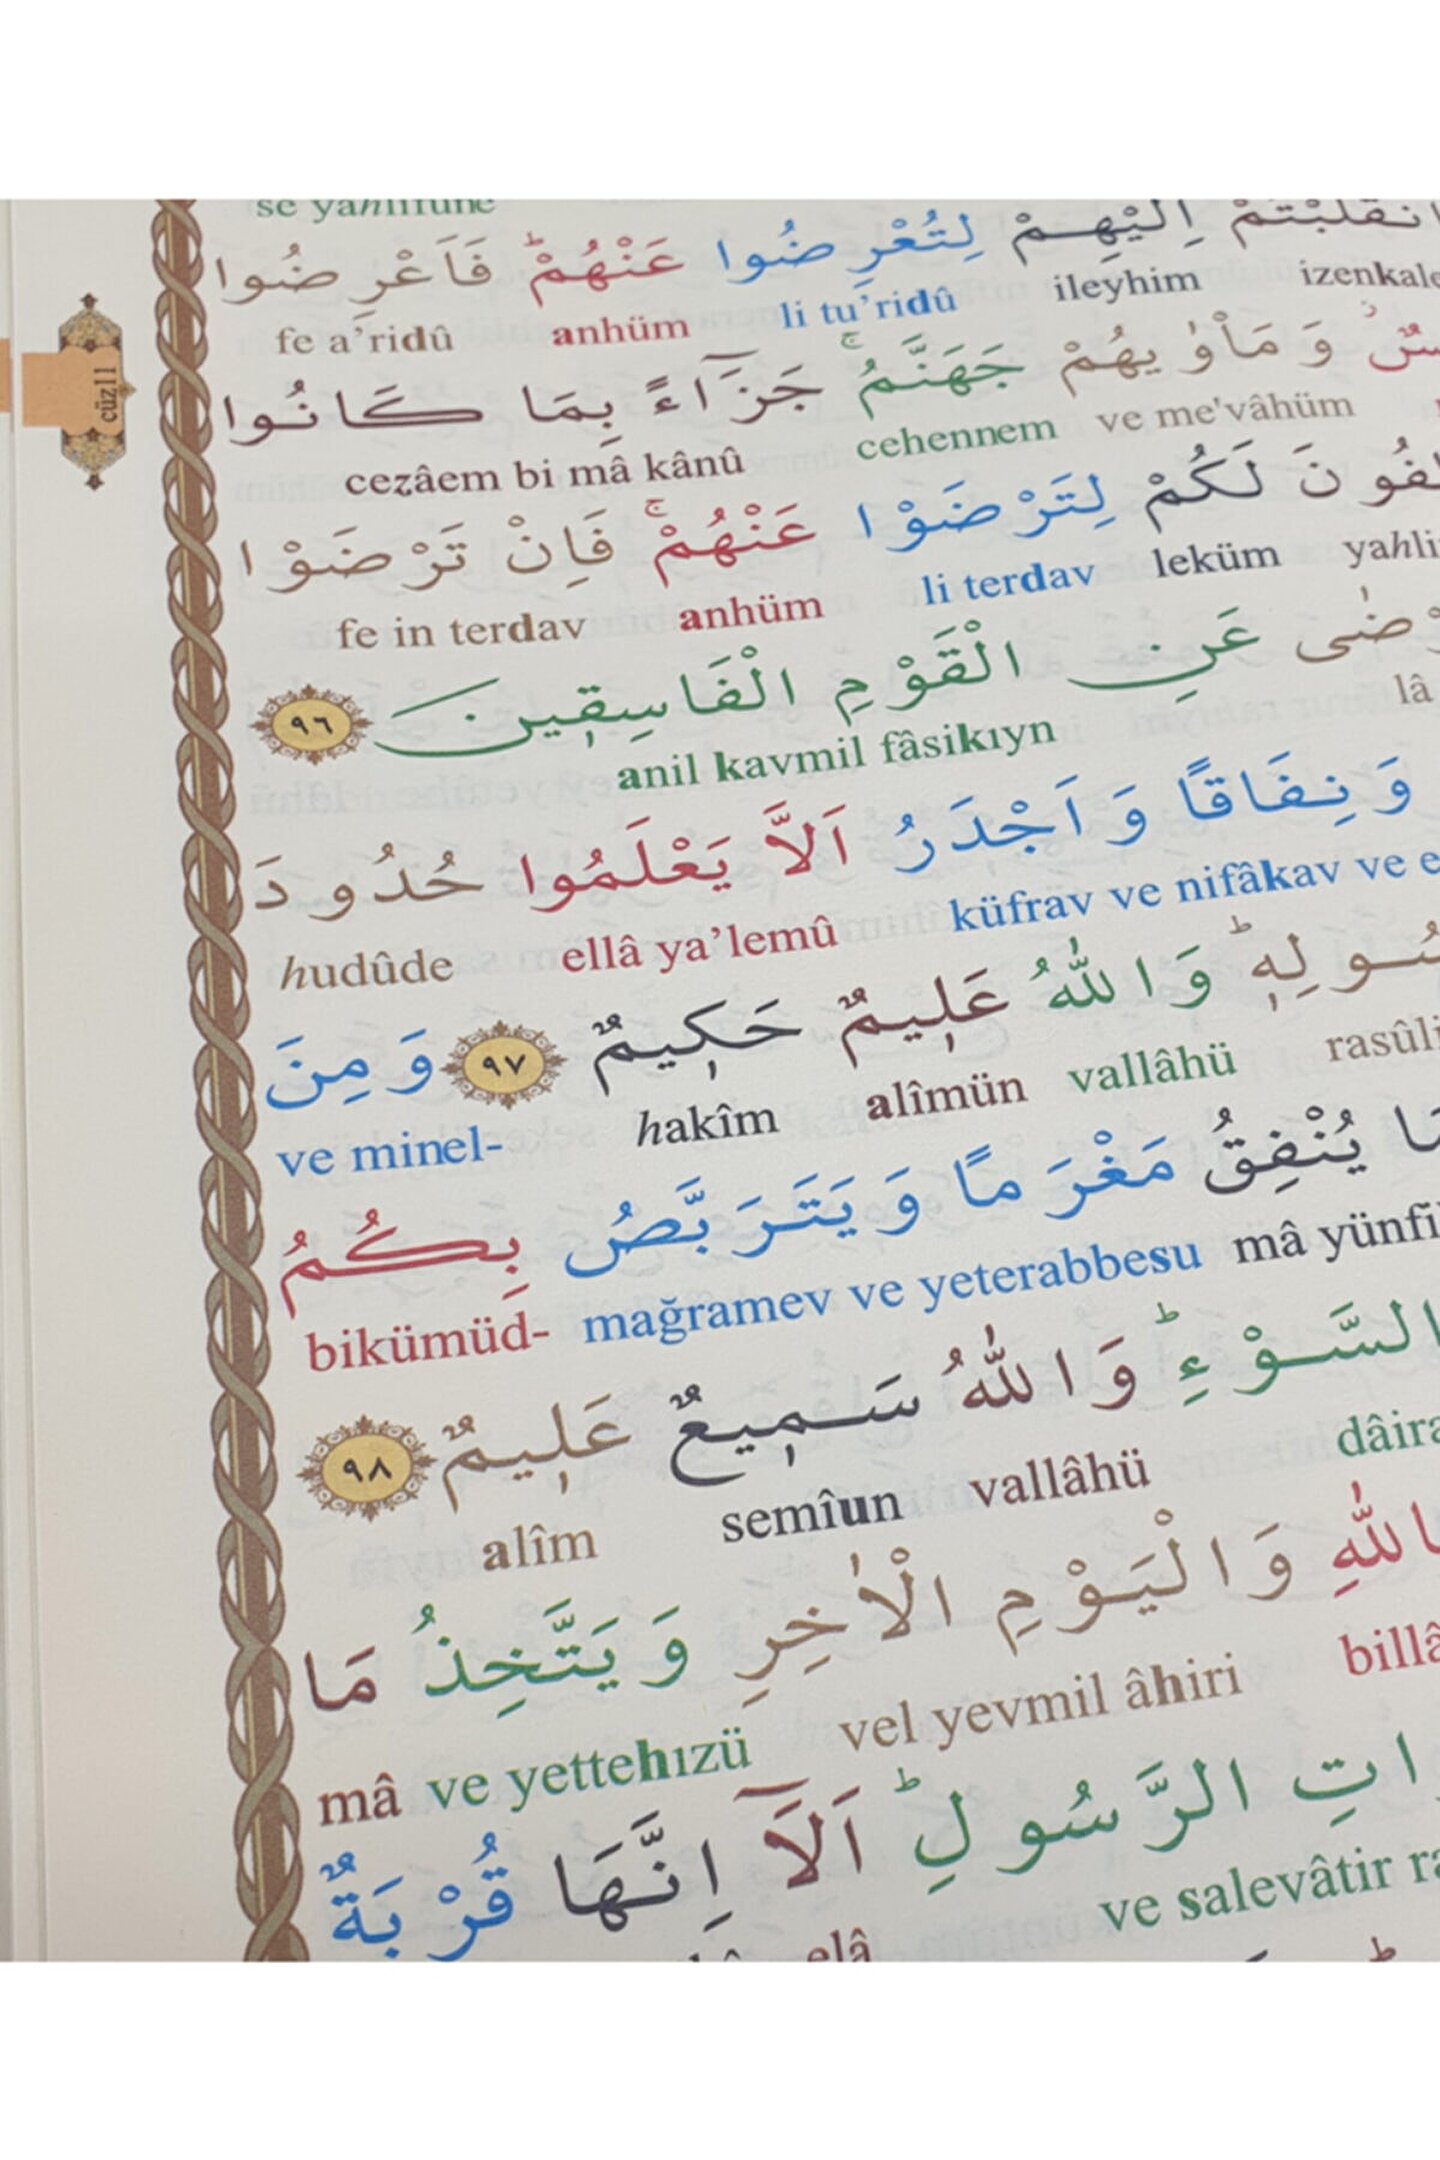 se yahlifûne
اِلَيْهِمْ لِتُعْرِضُوا عَنْهُمْؕ فَاَعْرِضُوا
ileyhim li tu’ridû anhüm fe a’ridû
وَمَأْوٰيهُمْ جَهَنَّمُۚ جَزَٓاءً بِمَا كَانُوا
ve me'vâhüm cehennem cezâem bi mâ kânû
لَكُمْ لِتَرْضَوْا عَنْهُمْۚ فَاِنْ تَرْضَوْا
leküm li terdav anhüm fe in terdav
عَنِ الْقَوْمِ الْفَاسِقٖينَ ٩٦
lâ anil kavmil fâsikıyn
وَنِفَاقًا وَاَجْدَرُ اَلَّا يَعْلَمُوا حُدُودَ
küfrav ve nifâkav ve ellâ ya’lemû hudûde
وَاللّٰهُ عَلٖيمٌ حَكٖيمٌ ٩٧ وَمِنَ
vallâhü alîmün hakîm ve minel-
يُنْفِقُ مَغْرَمًا وَيَتَرَبَّصُ بِكُمُ
mâ mağramev ve yeterabbesu bikümüd-
السَّوْءِؕ وَاللّٰهُ سَمٖيعٌ عَلٖيمٌ ٩٨
vallâhü semîun alîm
وَالْيَوْمِ الْاٰخِرِ وَيَتَّخِذُ مَا
vel yevmil âhiri ve yettehızü mâ
الرَّسُولِؕ اَلَٓا اِنَّهَا قُرْبَةٌ
ve salevâtir elâ
cüz11